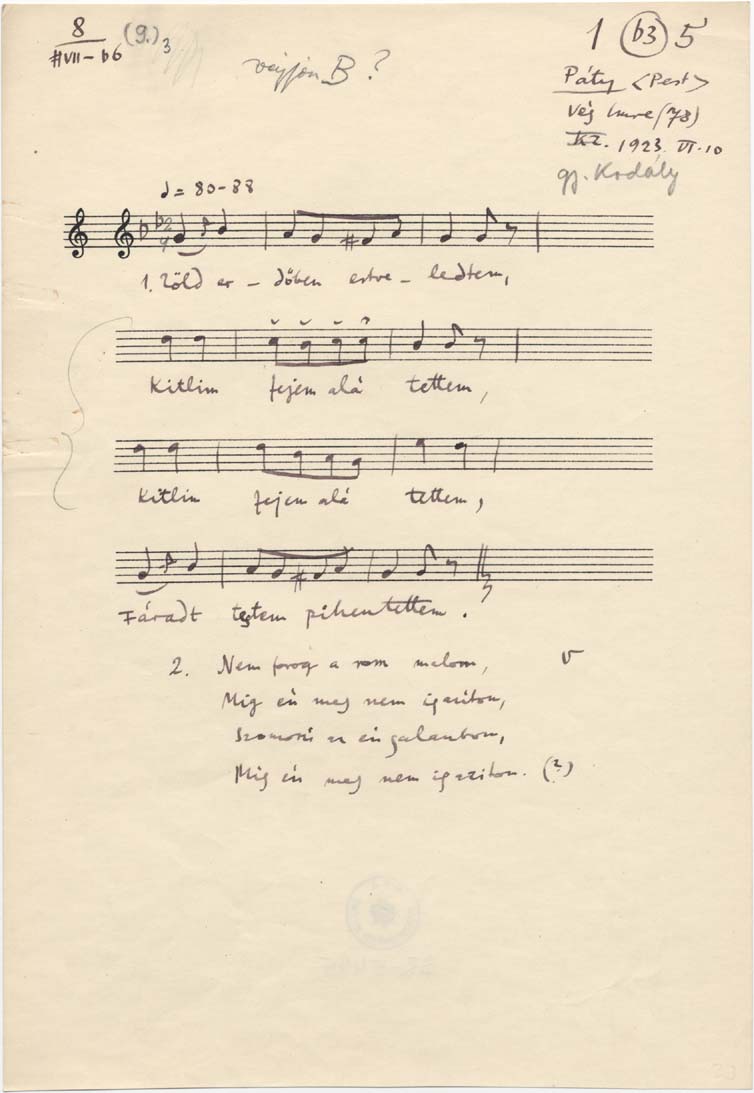 8
#VII – b6
(9.)3
B ?
1 (b3) 5
Páty <Pest>
Vég Imre (78)
1923. VI. 10
gy. Kodály
♩ = 80-88
1. Zöld er – dőben estve – ledtem,
Kitlim fejem alá tettem,
Kitlim fejem alá tettem,
Fáradt testem pihentettem.
2. Nem forog a malom,
Mig én meg nem igazitom,
Szomorú az én galambom,
Mig én meg nem igazitom. (?)